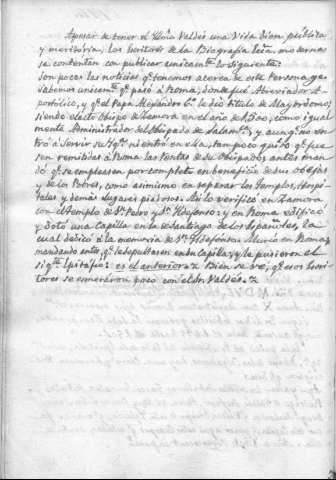 Apesar de tener el Ylmo Valdés una Vida bien pública
y meritoria, los Escritores de la Biografía Ecca. modernos
se contentan con publicar unicamte. lo siguiente:
son pocas las noticias qe. tenemos acerca de este Personage.
Sabemos unicamte. qe. pasó á Roma, donde fué Abreviador A-
postólico, y qe. el Papa Alejandro 6º. le dió título de Mayordomo,
siendo electo Obispo de Zamora en el año de 1500, como igual
mente Administrador del Obispado de Salamca., y aunqe. no en-
tró á servir su Ygª. ni entró en ella, tampoco quiso qe. fue
sen remitidas á Roma las Rentas de su Obispado, antes man-
dó qe. se empleasen por completo en beneficio de sus obejas
y de los Pobres, como asimismo en reparar los Templos, Hospi-
tales y demás lugares piadosos: Asi lo verificó en Zamora
con el Templo de Sn. Pedro y Sn. Yldefonso; y en Roma edificó
y dotó una Capilla en la de Santiago de los Españoles, la
cual dedicó á la memoria de Sn. Yldefonso: Murió en Roma,
mandando antes, qe. le sepultaran en su Capilla; y le pusieron el
sigte. Epitafio: es el anterior. Bien se vé, qe. esos Escri-
tores se esmeraron poco con el Sr. Valdés.